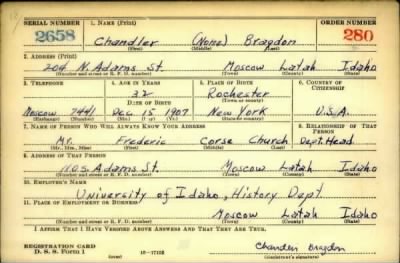 SERIAL NUMBER 1. NAME (Print) ORDER NUMBER
2658 Chandler (None) Bragdon 280
(First) (Middle) (Last)
2. ADDRESS (Print)
204 N. Adams St. Moscow Latah Idaho
(Number and street or R. F. D. number) (Town) (County) (State)
3. TELEPHONE 4. AGE IN YEARS 5. PLACE OF BIRTH 6. COUNTRY OF CITIZENSHIP
32 Rochester
DATE OF BIRTH (Town or county)
Moscow 7441 Dec 15 1907 New York U.S.A.
(Exchange) (Number) (Mo.) (Day) (Yr.) (State or country)
7. NAME OF PERSON WHO WILL ALWAYS KNOW YOUR ADDRESS 8. RELATIONSHIP OF THAT PERSON
Mr. Frederic Corse Church Dept. Head
(Mr., Mrs., Miss) (First) (Middle) (Last)
9. ADDRESS OF THAT PERSON
Adams St. Moscow Latah Idaho
(Number and street or R. F. D. number) (Town) (County) (State)
10. EMPLOYER'S NAME
University of Idaho, History Dept.
11. PLACE OF EMPLOYMENT OR BUSINESS
Moscow Latah Idaho
(Number and street or R. F. D. number) (Town) (County) (State)
I AFFIRM THAT I HAVE VERIFIED ABOVE ANSWERS AND THAT THEY ARE TRUE.
REGISTRATION CARD
D. S. S. Form 1 16-17105 Chandler Bragdon
(Registrant's signature)